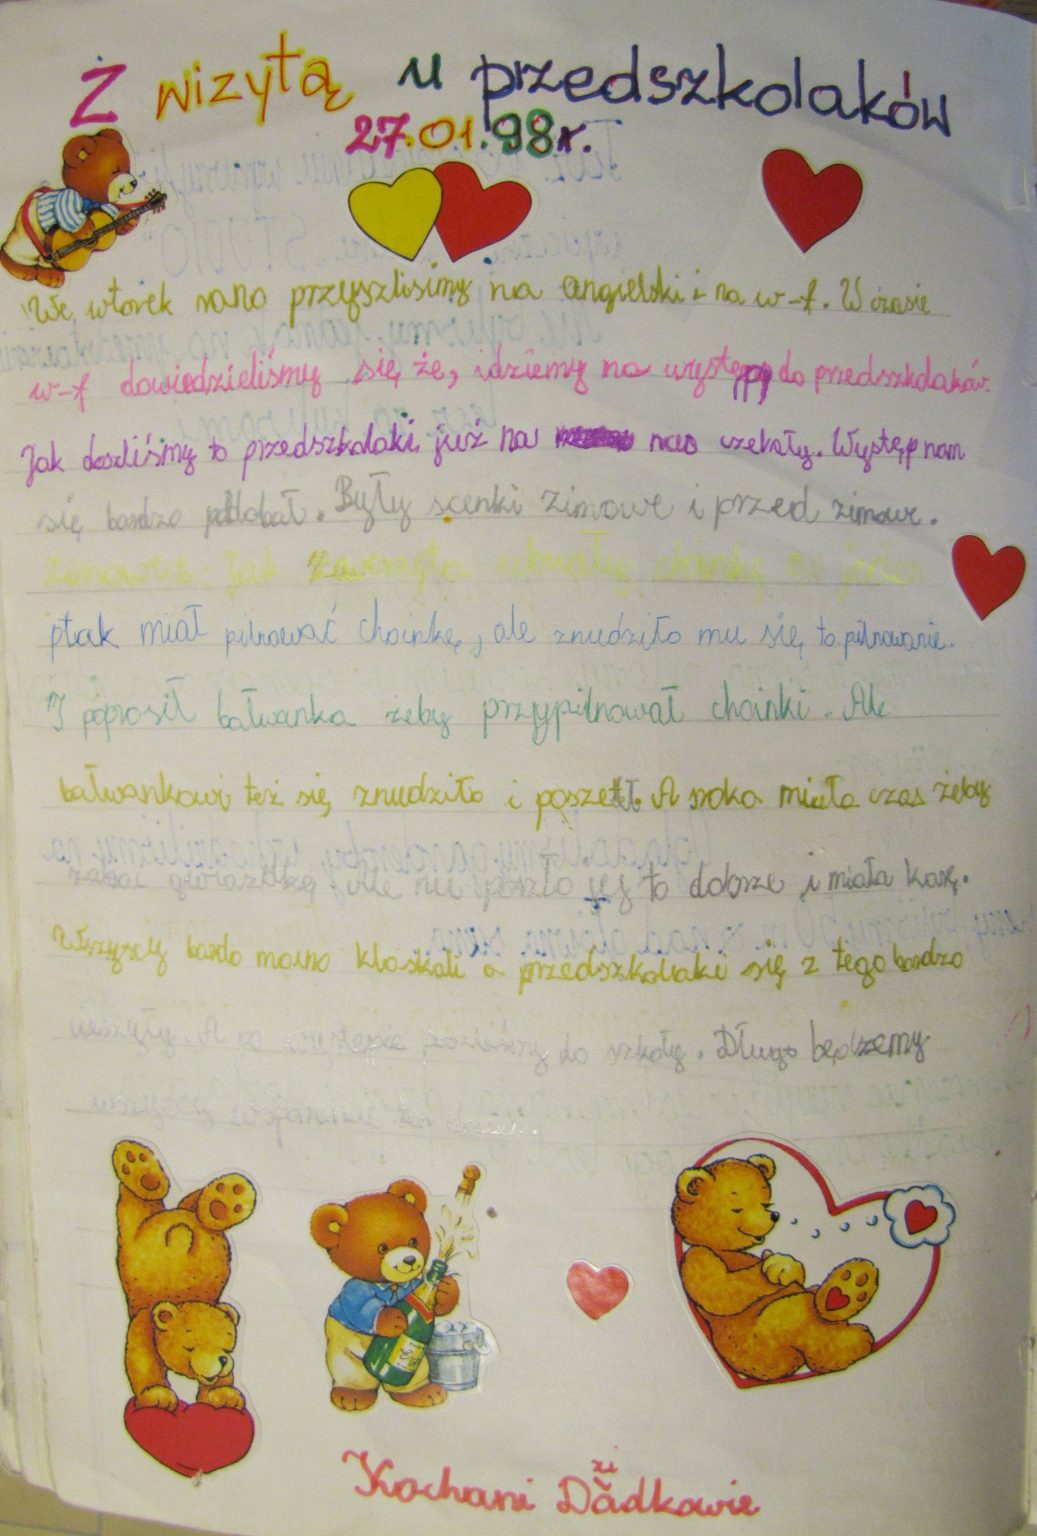 Z wizytą u przedszkolaków
27.01.98r.
We wtorek rano przyszliśmy na angielski i na w-f. W czasie
w-f dowiedzieliśmy się że, idziemy na występy do przedszkolaków.
Jak doszliśmy to przedszkolaki już na nas czekały. Występ nam
się bardzo podobał. Były scenki zimowe i przed zimowe.
Zimowe: Jak zwierzęta ubrały choinkę to jeden
ptak miał pilnować choinkę, ale znudziło mu się to pilnowanie.
I poprosił bałwanka żeby przypilnował choinki. Ale
bałwankowi też się znudziło i poszedł. A sroka miała czas żeby
zabrać gwiazdkę. Ale nie poszło jej to dobrze i miała karę.
Wszyscy bardo mocno kloskali a przedszkolaki się z tego bardzo
cieszyły. A po występie poszliśmy do szkoły. Długo będziemy
wszyscy wspominać ten dzień.
Kochani Dziadkowie